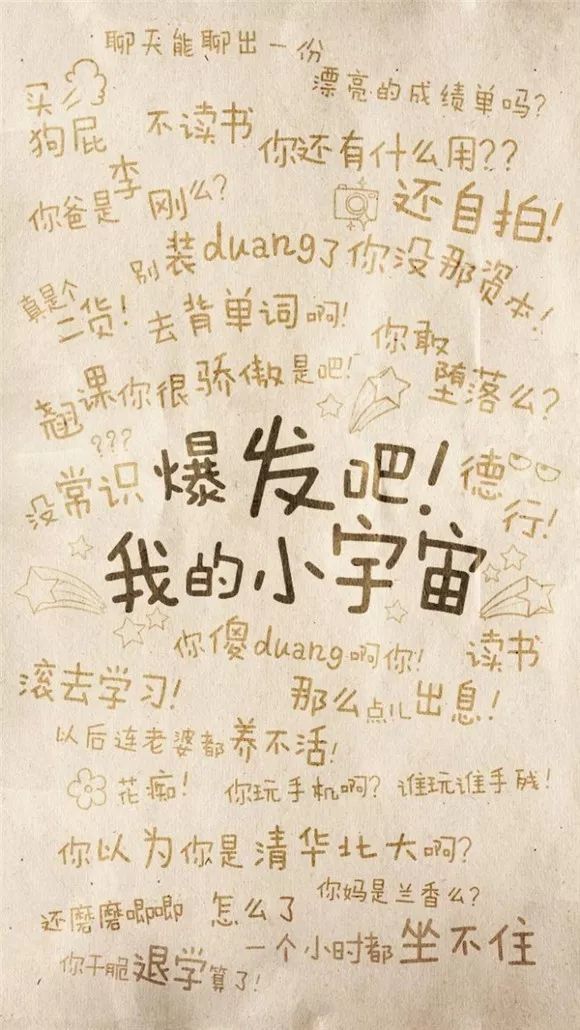 聊天能聊出一份
漂亮的成绩单吗？
买
狗屁
不读书
你还有什么用??
你爸是李刚么？
还自拍！
别装duang了你没那资本！
真是个
二货！
去背单词啊！
你敢
堕落么？
翘课你很骄傲是吧！
???
没常识
爆发吧！
德
行！
我的小宇宙
你傻duang啊你！
读书
滚去学习！
那么点儿出息！
以后连老婆都养不活！
花痴！
你玩手机啊？谁玩谁手残！
你以为你是清华北大啊？
你妈是兰香么？
还磨磨唧唧
怎么了
一个小时都坐不住
你干脆退学算了！